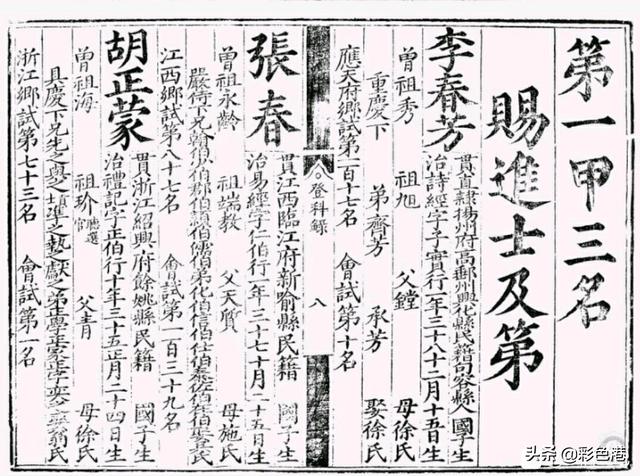 第一甲三名
賜進士及第
李春芳
貫直隸揚州府高郵州興化縣民籍句容縣人國子生
治詩經字子實行一年三十八十二月十五日生
曾祖秀 祖旭 父鏜 母徐氏
重慶下 弟齊芳 承芳 娶徐氏
應天府鄉試第一百十七名 會試第十名
登科錄 八
張春
貫江西臨江府新喻縣民籍 國子生
治易經字仁伯行一年三十七十月二十五日生
曾祖永齡 祖端教 父天質 母施氏
嚴侍下兄
江西鄉試第八十七名 會試第一百三十九名
胡正蒙
貫浙江紹興府餘姚縣民籍 國子生
治禮記字正伯行十年三十五正月二十四日生
曾祖海 祖玠聽選官 父青 母徐氏
具慶下兄
浙江鄉試第七十三名 會試第一名
头条 @彩色港